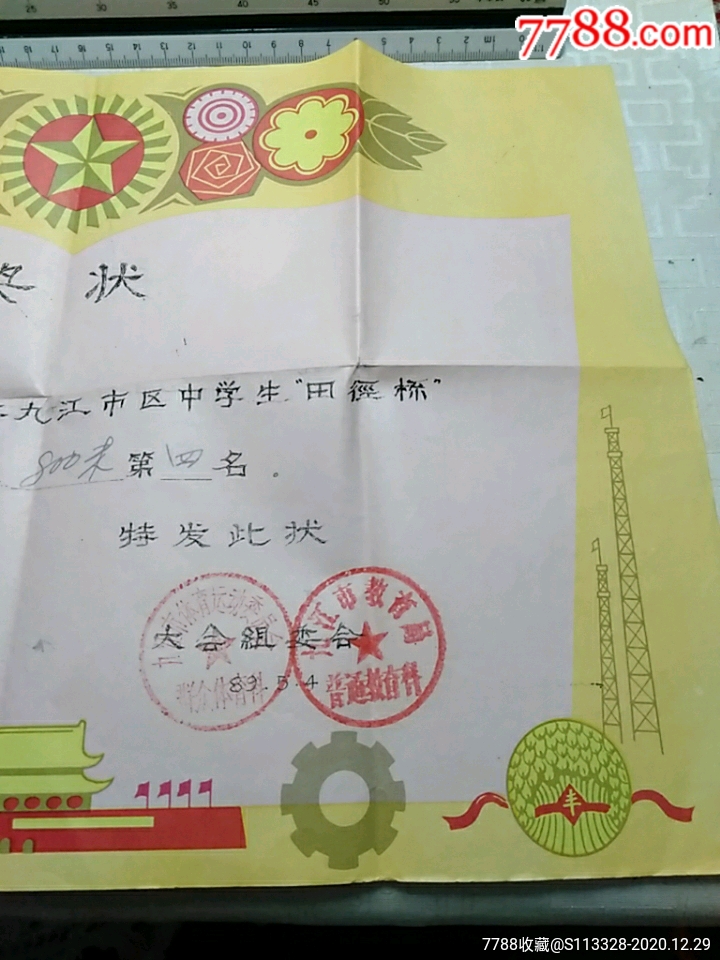 7788.com
奖状
九江市区中学生"田径杯"
800米第四名。
特发此状
九江市体育运动委员会
群众体育科
九江市教育局
普通教育科
大会组委会
89.5.4
丰
7788收藏@S113328-2020.12.29